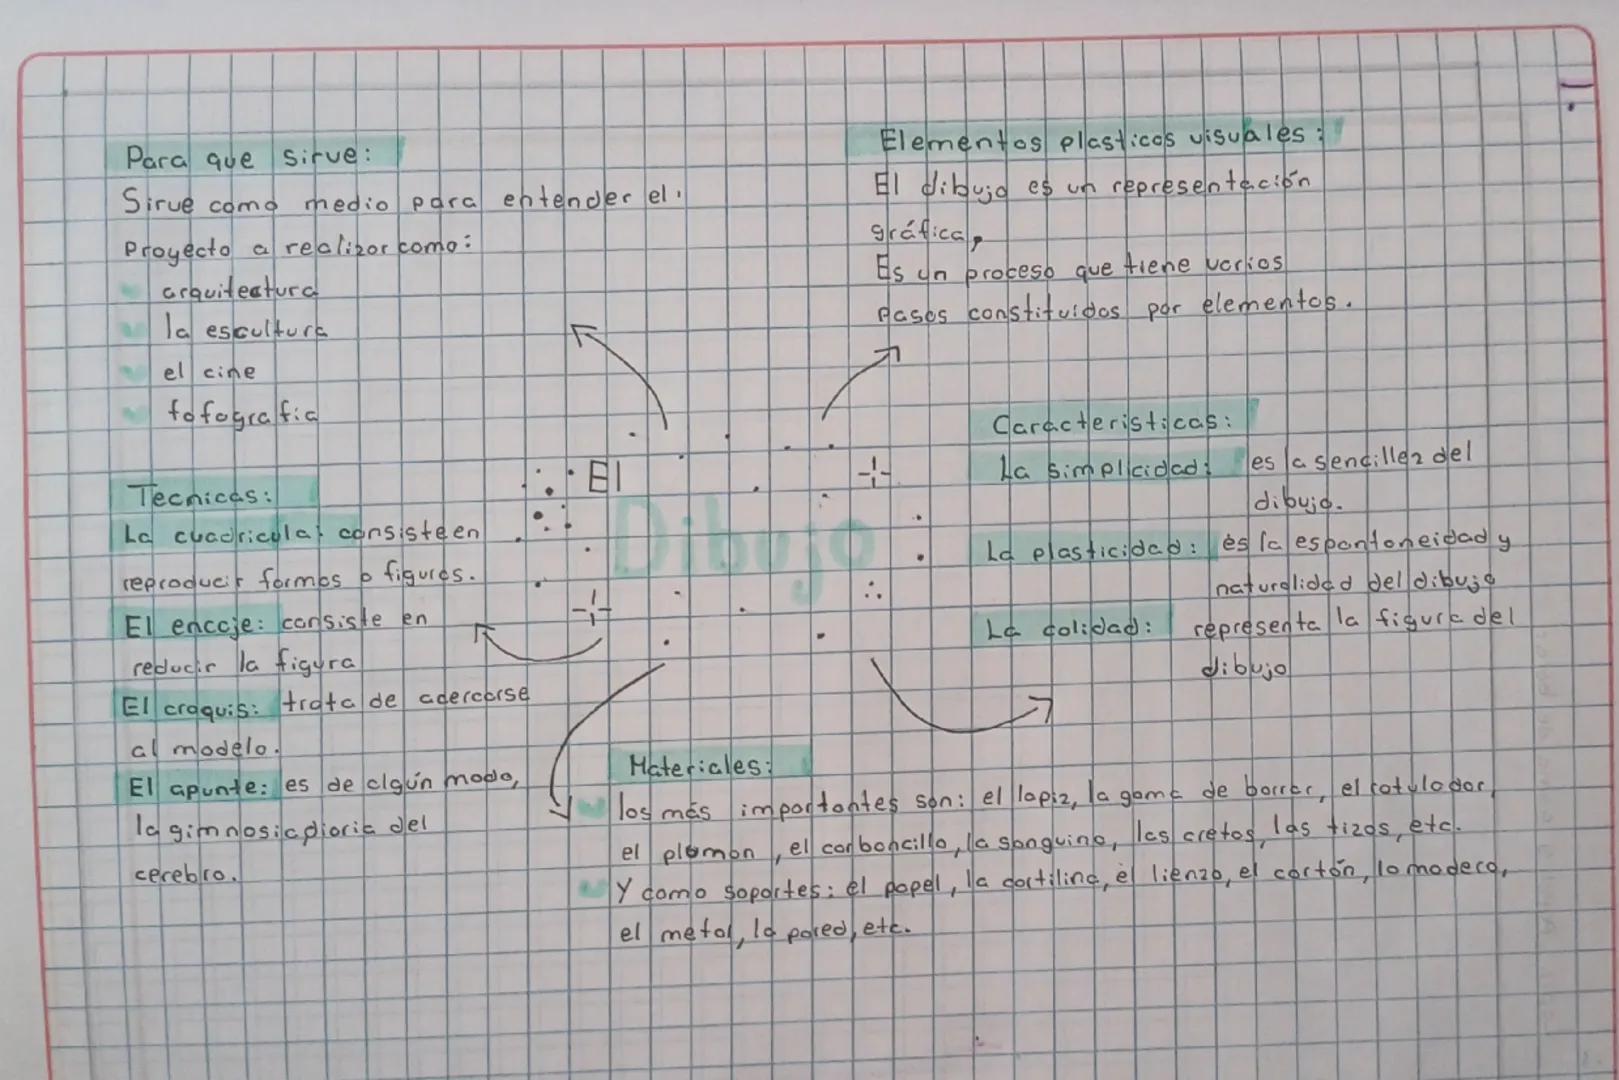 Para que sirve:
Sirve como medio para entender el
Proyecto a realizar como:
arquitectura
la escultura
el cine
fofografia
Elementos plasticos visuales:
El dibujo es un representación
gráfica,
Es un proceso que tiene varios
pasos constituidos por elementos.
El
Dibujo
Tecnicas:
La cuadricula: consiste en
reproducir formas o figuras.
El encaje: consiste en
reducir la figura
El croquis: trata de acercarse
al modelo.
El apunte: es de algún modo,
la gimnosia diaria del
cerebro.
Caracteristicas:
La simplicidad: es la sencillez del
dibujo.
La plasticidad: es la espontaneidad y
naturalidad del dibujo
La calidad: representa la figura del
dibujo
Materiales:
los más importantes son: el lapiz, la goma de borrar, el rotulador,
el plumon, el carboncillo, la sanguina, las cretas, las tizas, etc.
Y como soportes: el papel, la cartilina, el lienzo, el cartón, la madera,
el metal, la pared, etc.